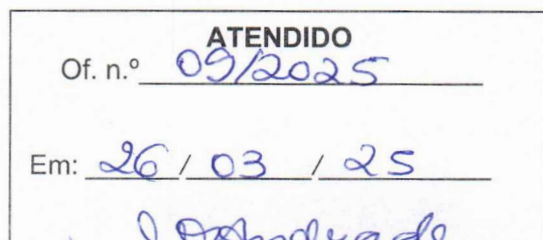 ATENDIDO
Of. n.º 09/2025
Em: 26 / 03 / 25